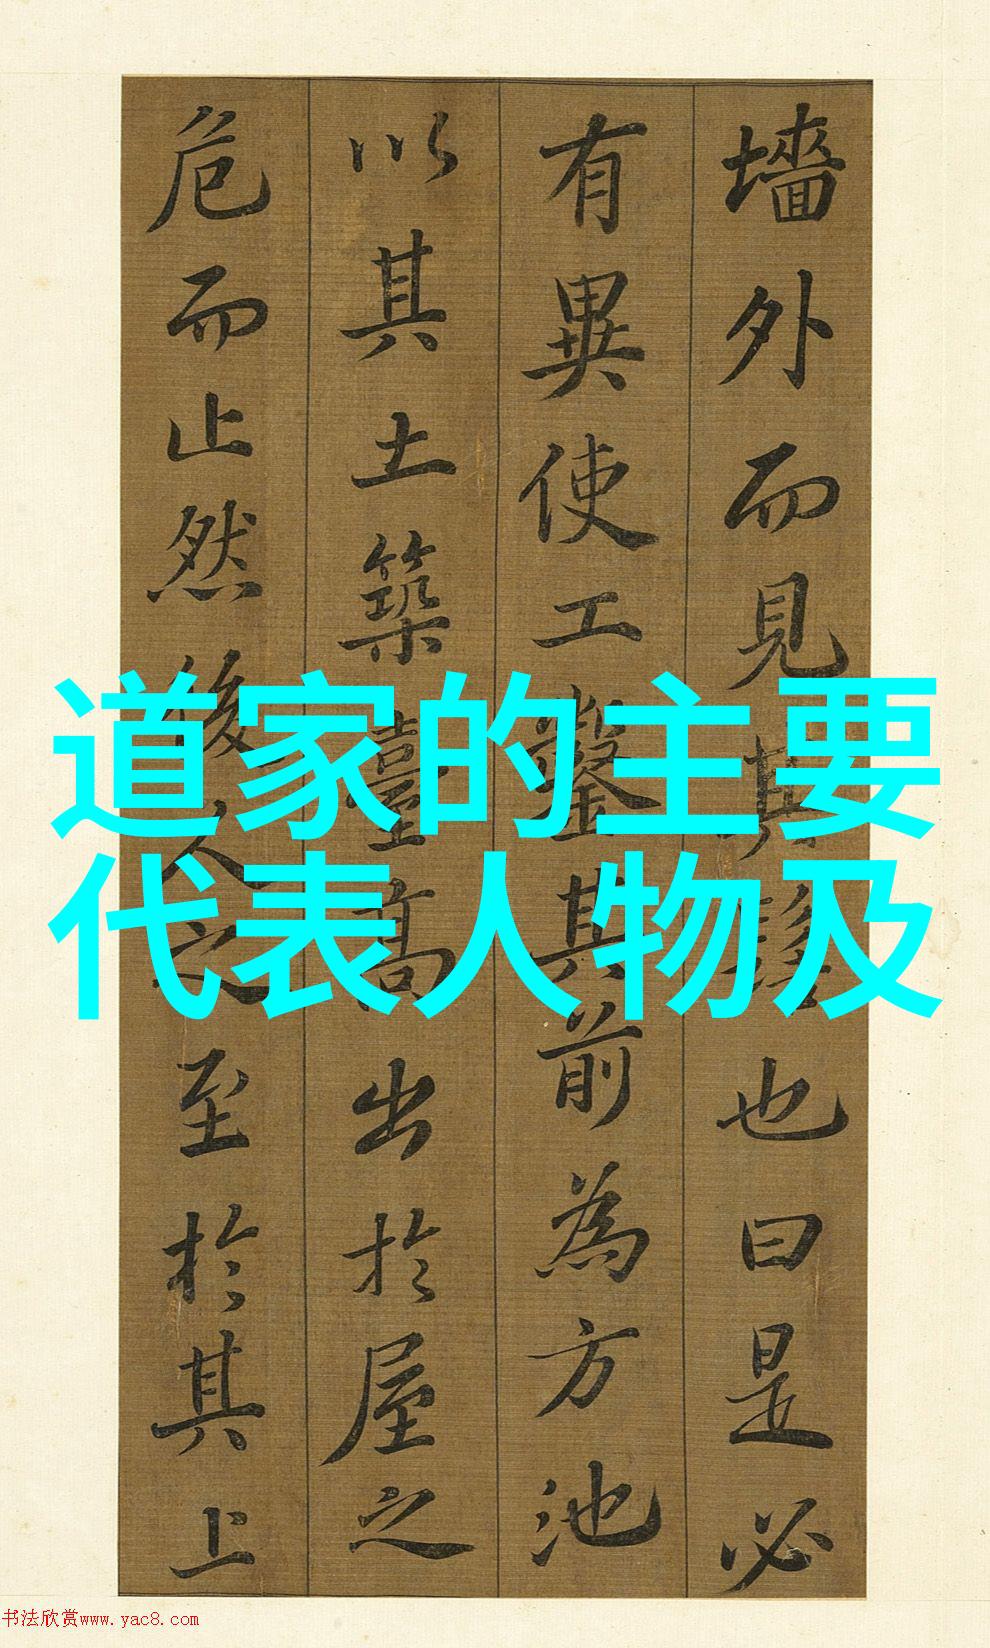 墻外而見其髻也曰是必
有異使工鑿其前為方池
以其土築臺高出於屋之
危而止然後人之至於其上
道家的主要
代表人物及
书法欣赏www.yac8.com